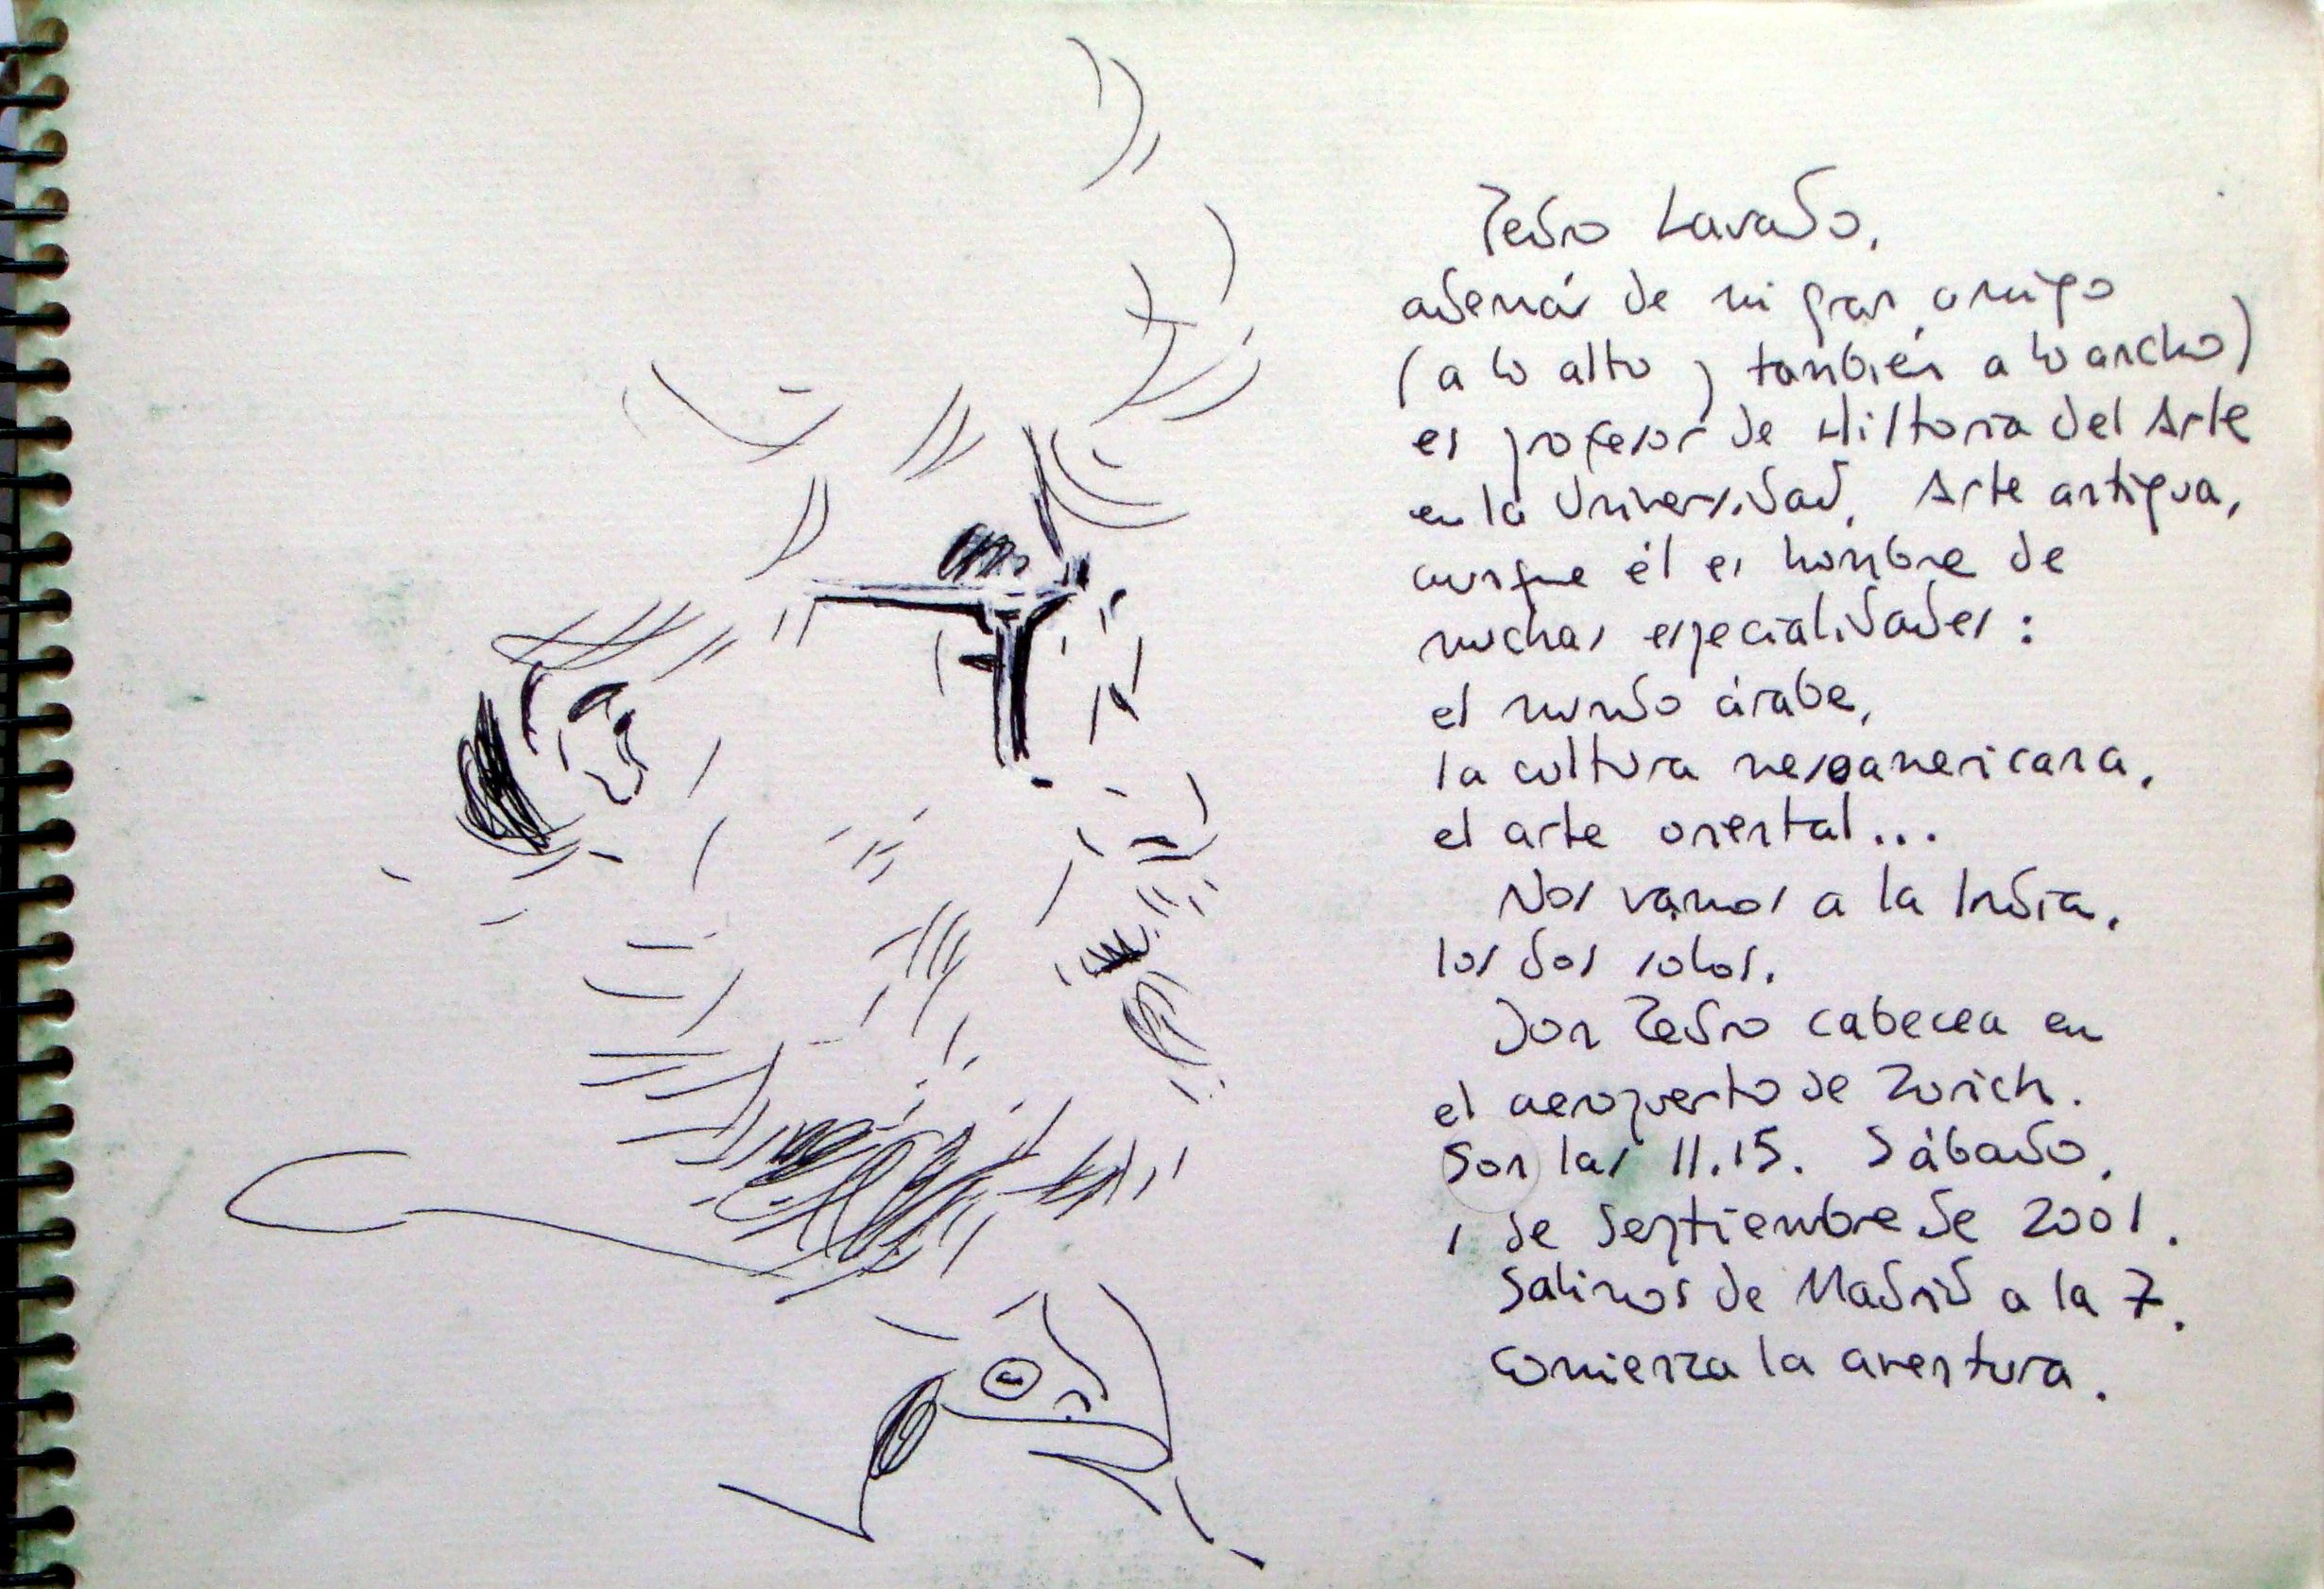 Pedro Lavado,
además de mi gran amigo
(a lo alto y también a lo ancho)
es profesor de Historia del Arte
en la Universidad. Arte antigua,
aunque él es hombre de
muchas especialidades:
el mundo árabe,
la cultura mesoamericana,
el arte oriental...
Nos vamos a la India,
los dos solos.
Don Pedro cabecea en
el aeropuerto de Zurich.
Son las 11.15. Sábado,
1 de Septiembre de 2001.
Salimos de Madrid a la 7.
Comienza la aventura.